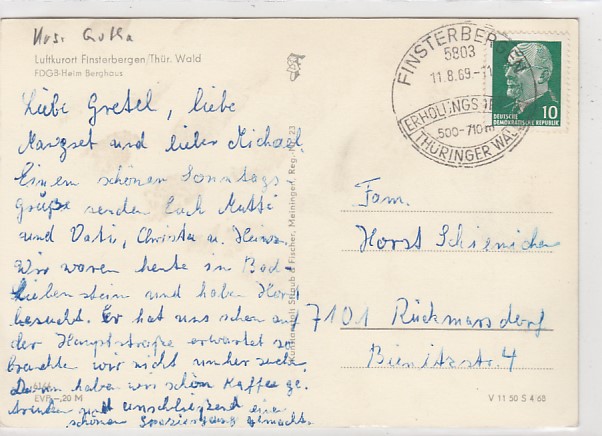 Krs. Gotha
Luftkurort Finsterbergen/Thür. Wald
FDGB-Heim Berghaus
Liebe Gretel, liebe
Margret und lieber Michael,
Einen schönen Sonntags
grüße senden Euch Mutti
und Vati, Christa u. Heinz
Wir waren heute in Bad
Liebenstein und haben Horst
besucht. Er hat uns schon auf
der Hauptstraße erwartet so
brauchten wir nicht umher suchen
Dann haben wir schön Kaffee ge
trunken und anschließend einen
schönen Spaziergang gemacht.
6166
EVP -,20 M
Kunstanstalt Straub & Fischer, Meiningen, Reg.-Nr. 23
FINSTERBERGEN
5803
11.8.69-11
ERHOLUNGSORT
500-710 m
THÜRINGER WALD
DEUTSCHE
DEMOKRATISCHE REPUBLIK
10
Fam.
Horst
7101 Rückmarsdorf
Bienitzstr. 4
V 11 50 S 4 68